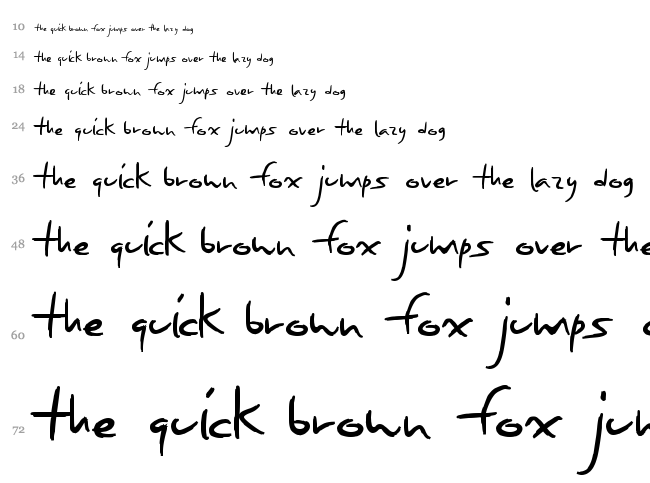 10 the quick brown fox jumps over the lazy dog
14 the quick brown fox jumps over the lazy dog
18 the quick brown fox jumps over the lazy dog
24 the quick brown fox jumps over the lazy dog
36 the quick brown fox jumps over the lazy dog
48 the quick brown fox jumps over the
60 the quick brown fox jumps o
72 the quick brown fox jun